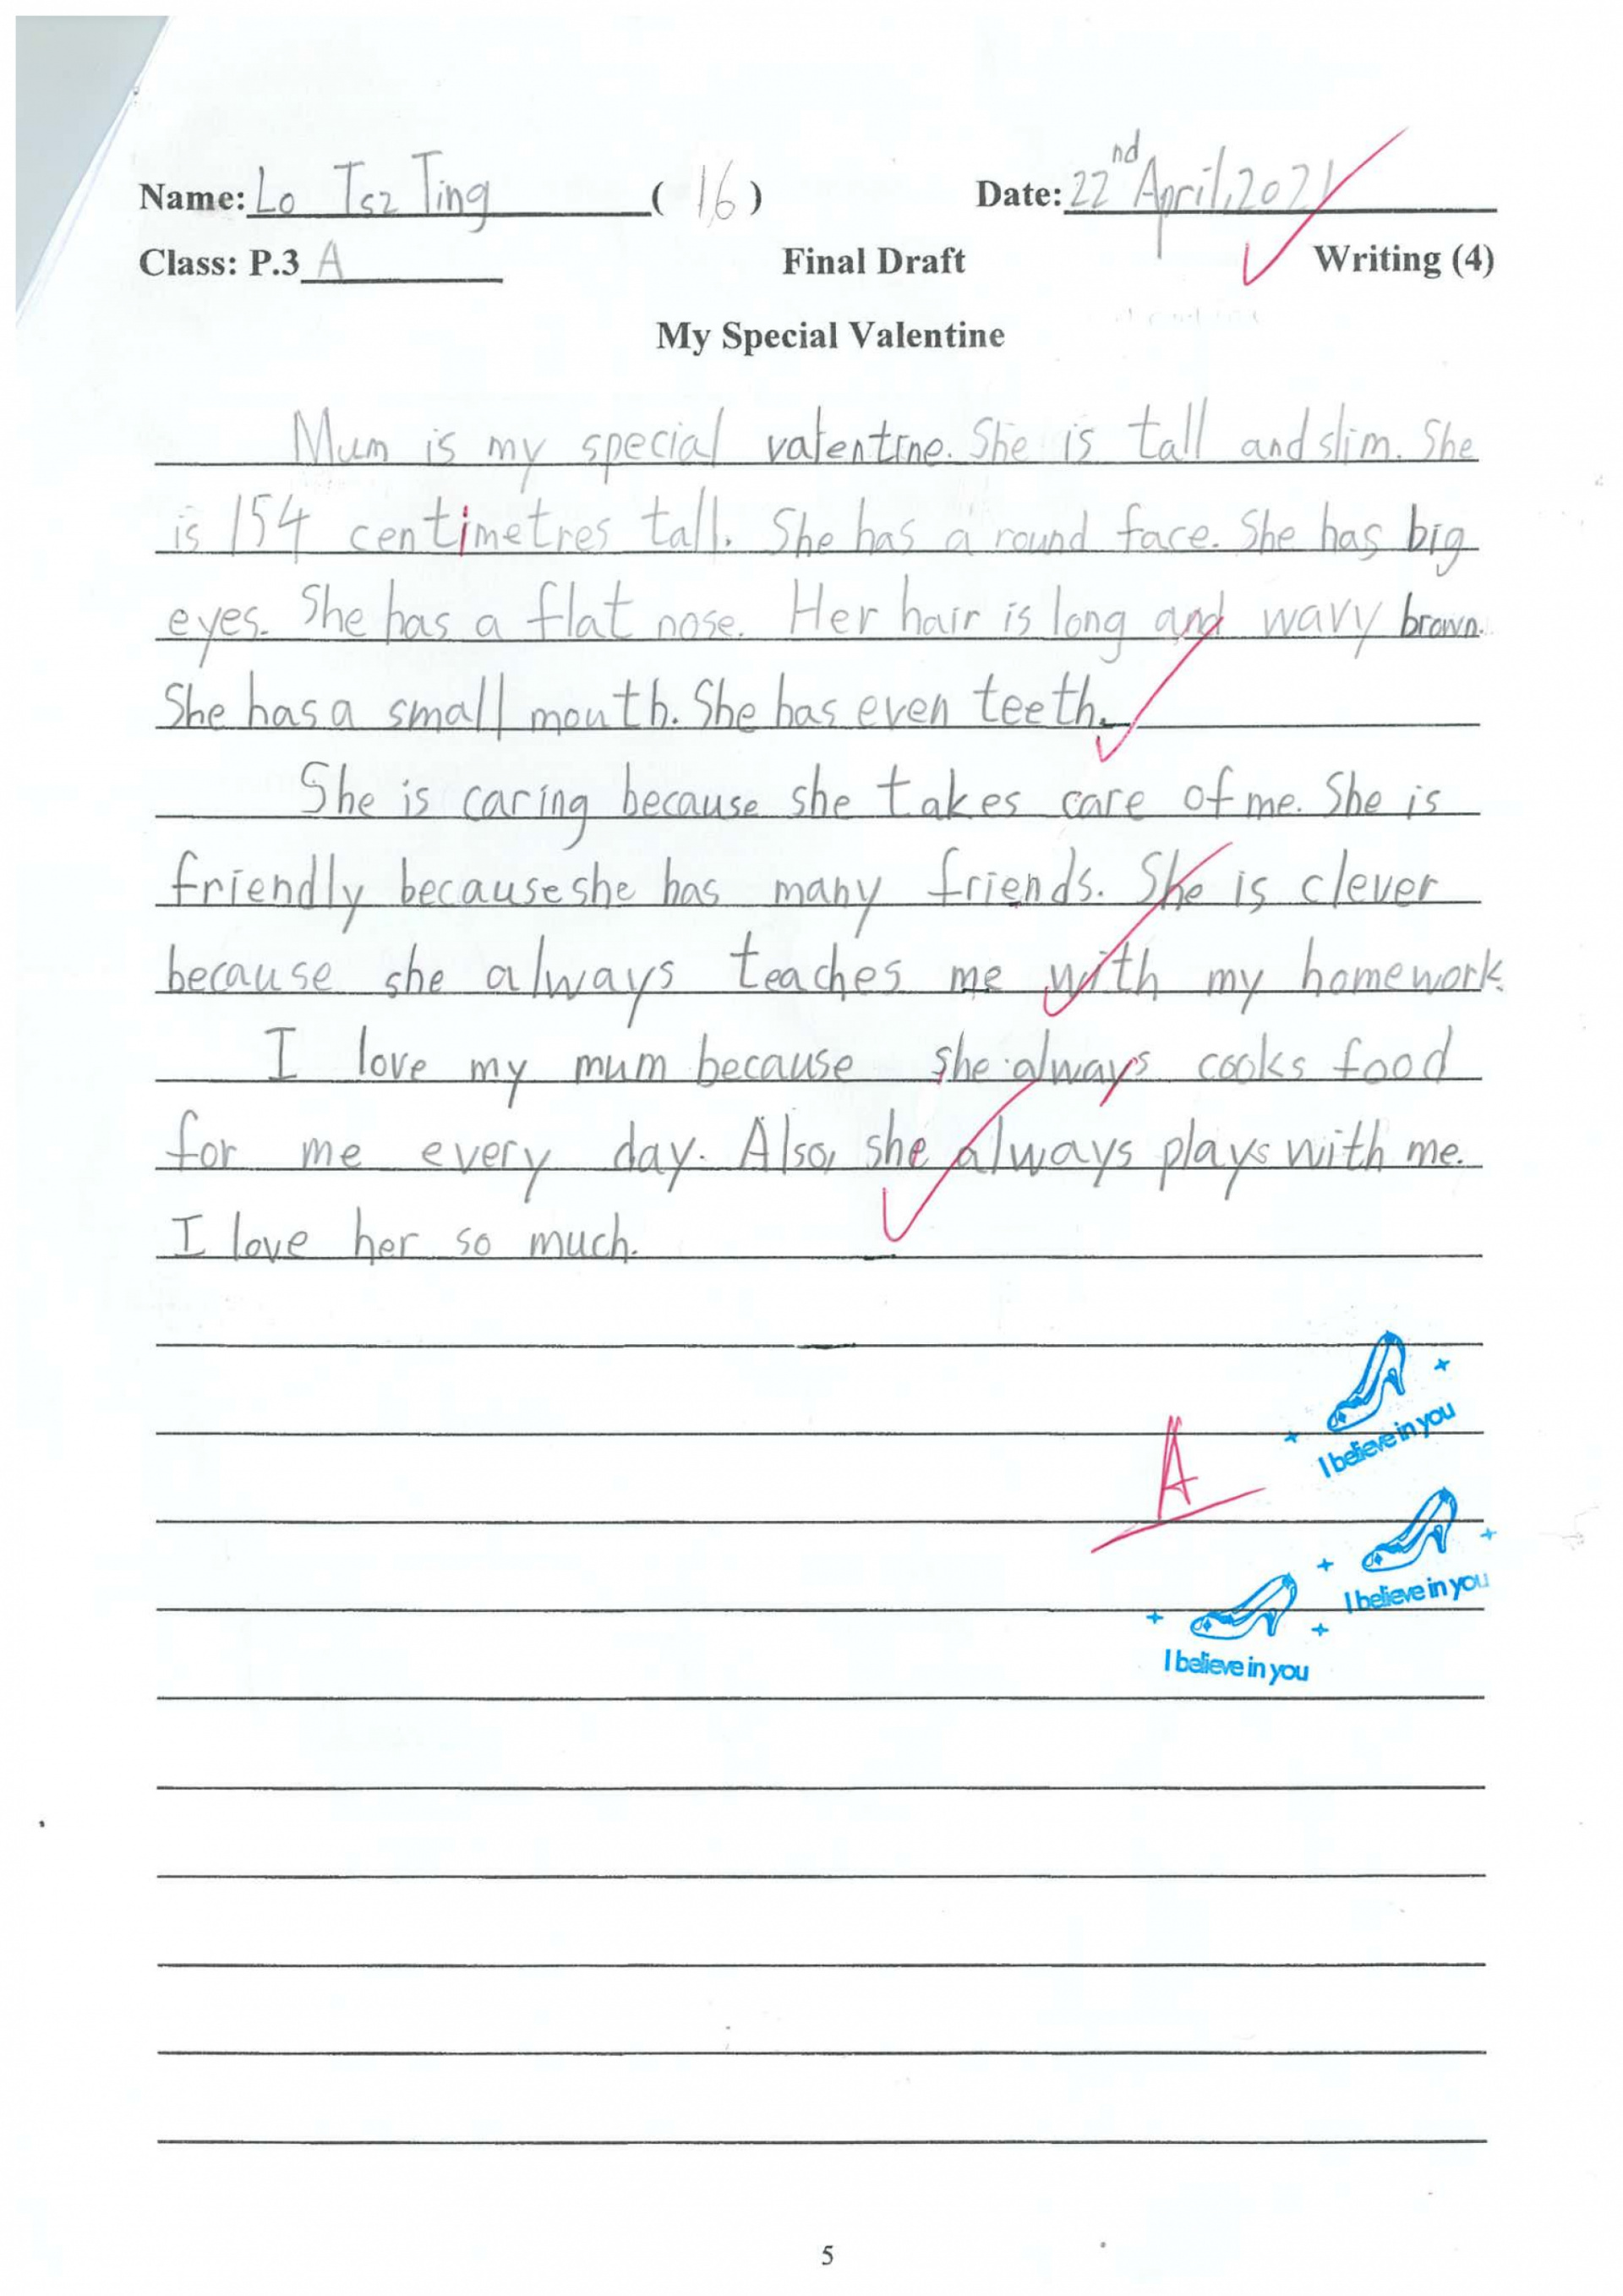 Name: Lo Tsz Ting ( 16 ) Date: 22nd April, 2021
Class: P.3 A Final Draft Writing (4)
My Special Valentine
Mum is my special valentine. She is tall and slim. She
is 154 centimetres tall. She has a round face. She has big
eyes. She has a flat nose. Her hair is long and wavy brown.
She has a small mouth. She has even teeth.
She is caring because she takes care of me. She is
friendly because she has many friends. She is clever
because she always teaches me with my homework.
I love my mum because she always cooks food
for me every day. Also, she always plays with me.
I love her so much.
I believe in you
A
I believe in you
I believe in you
5